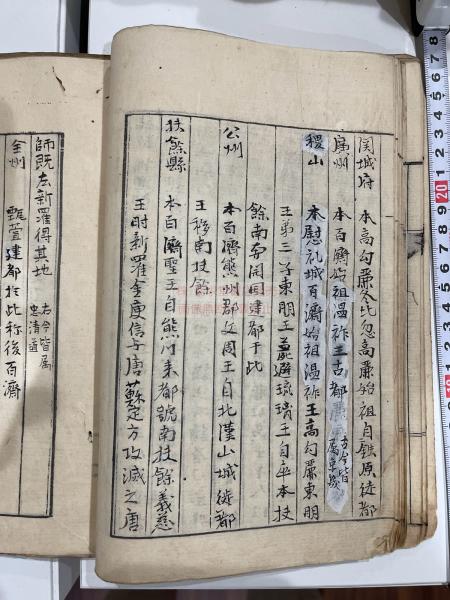 開城府 本高勾麗冬比忽高麗始祖自鉄原徙都
廣州 本百濟始祖温祚王古都麗 古今皆
稷山 本慰礼城百濟始祖温祚王高勾麗東明
王第三子東明王薨避琉璃王自卒本扶
餘南奔開国建都于此
公州 本百濟熊州郡文周王自北漢山城徙都
王移南扶餘
扶餘縣 本百濟聖王自熊川来都號南扶餘義慈
王時新羅金庾信与唐蘇定方攻滅之唐
師既去新羅得其地 右今皆属
忠清道
全州 甄萱建都於此称後百濟